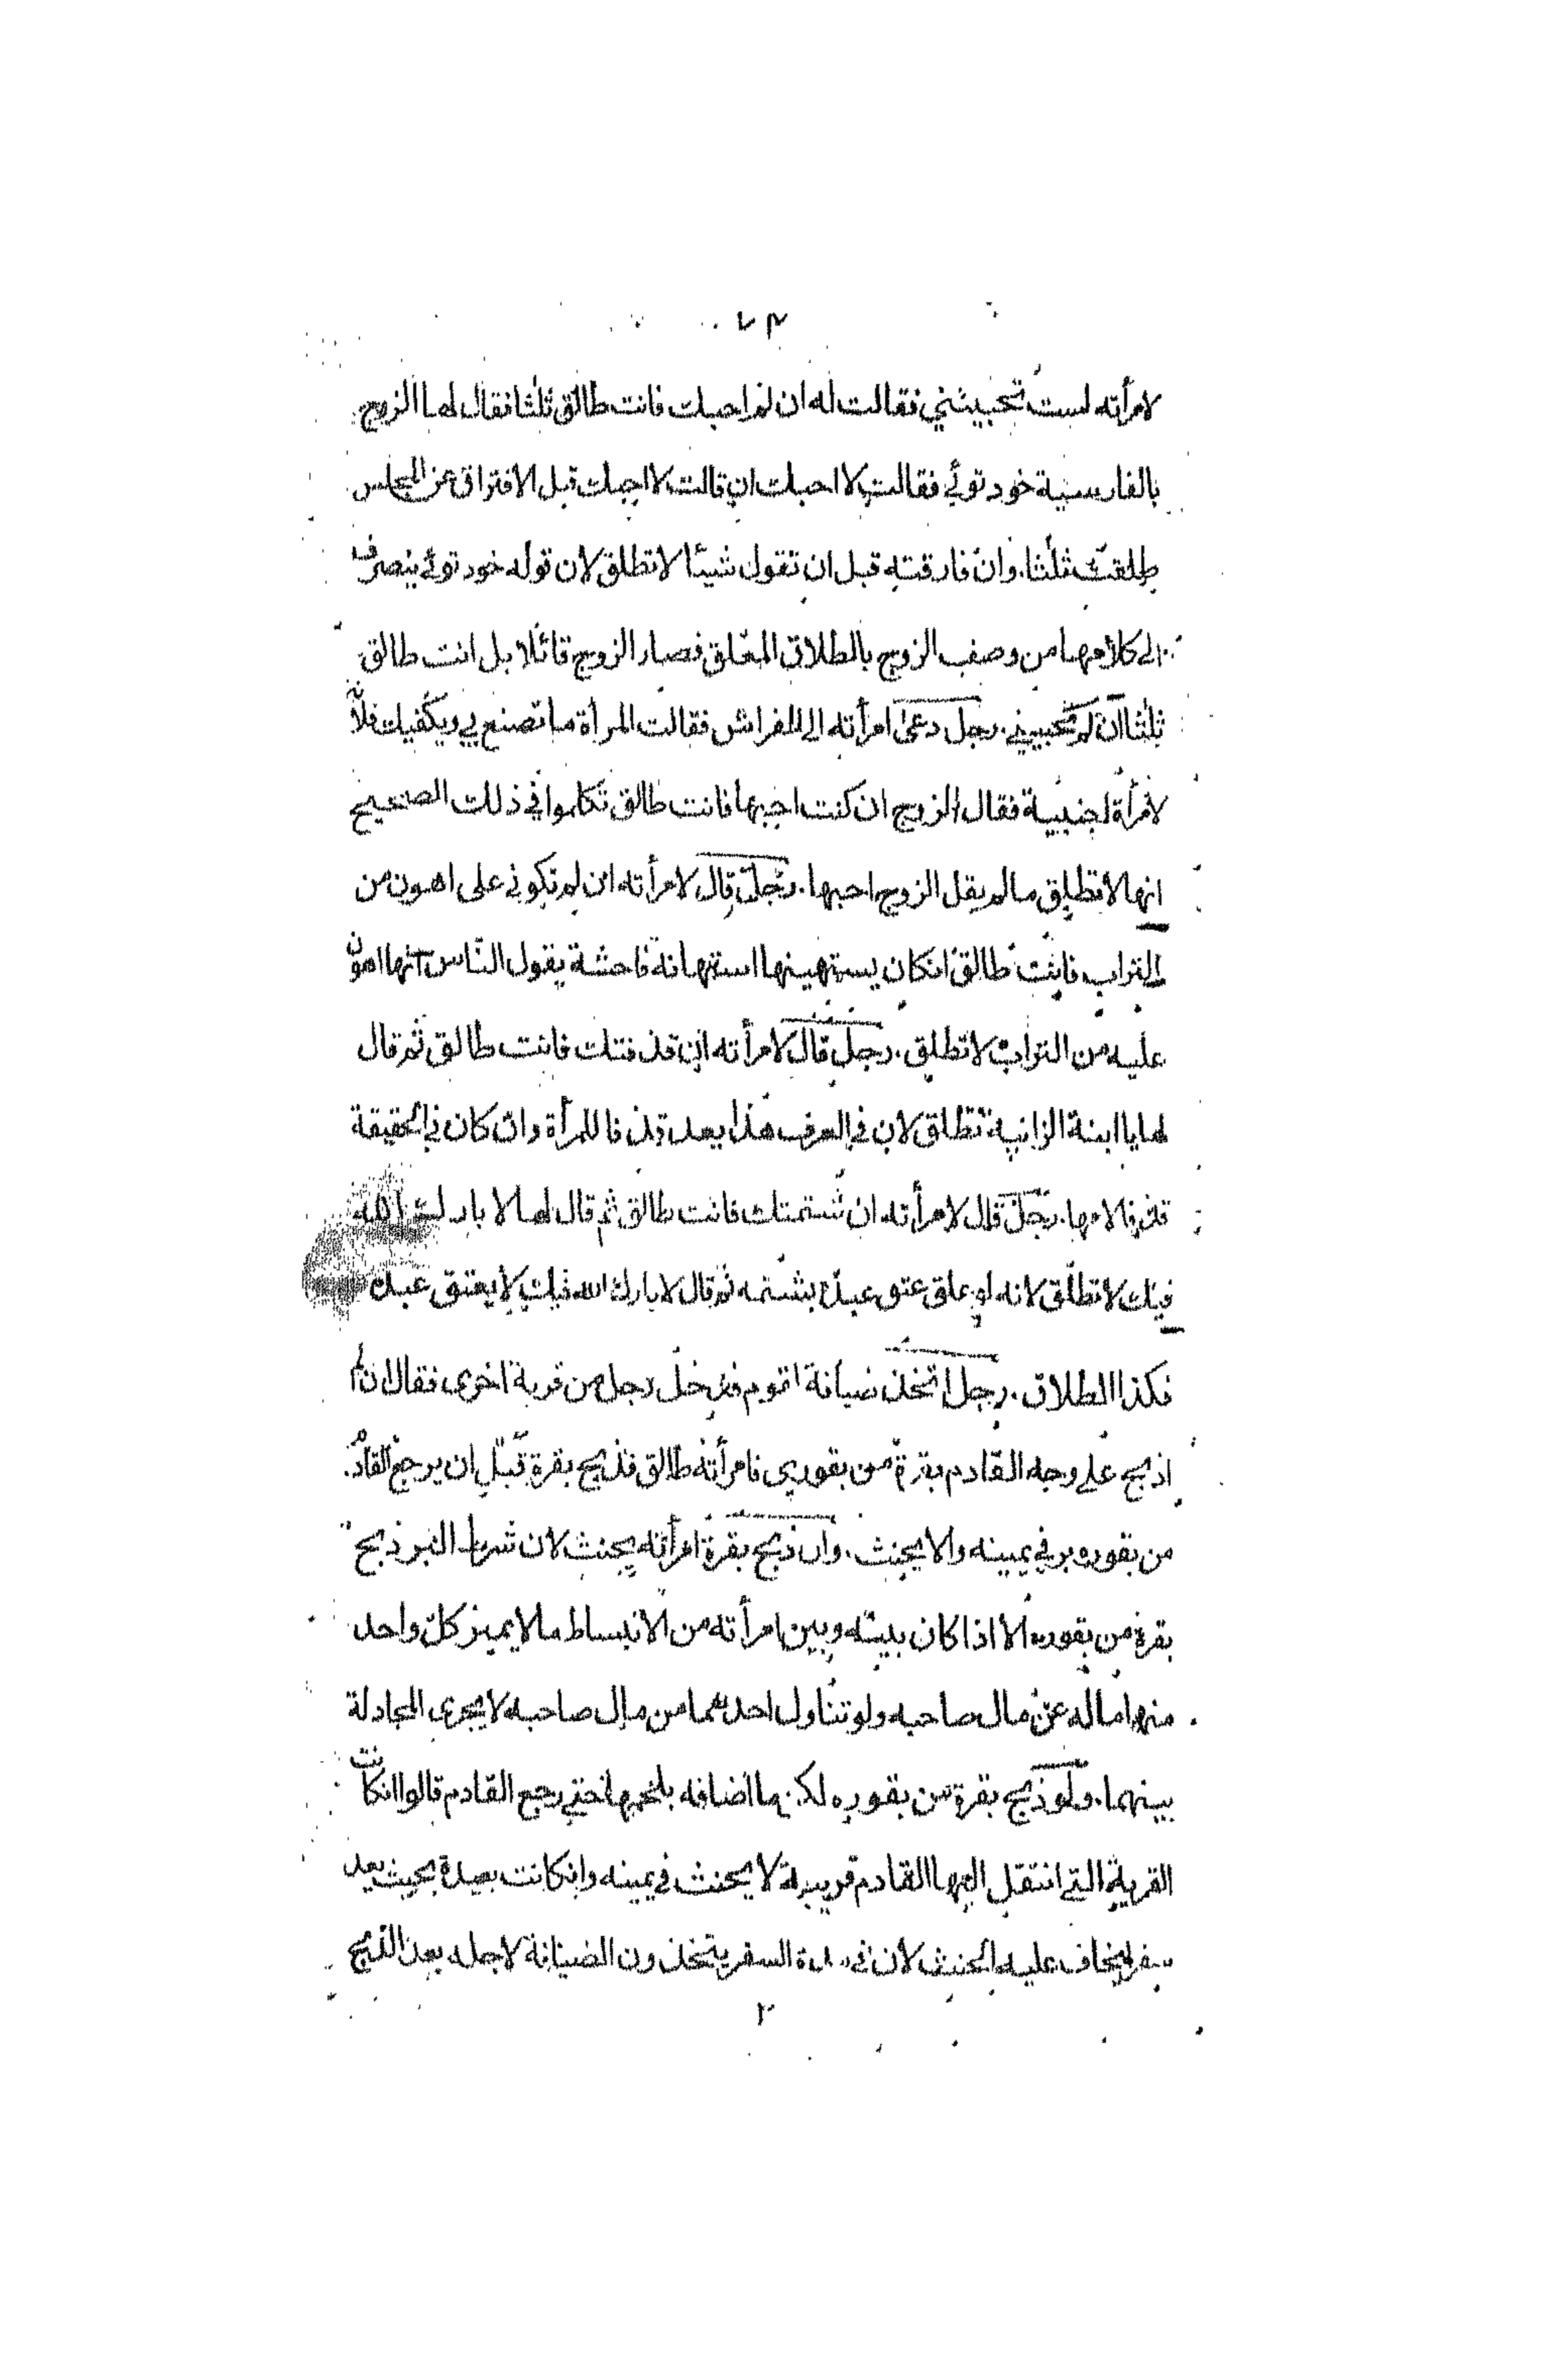 ٧٣
لامرأته لست تحبيبنني فقالت له ان لم احبك فانت طالق ثلثا فقال لها الزوج
بالفارسية خود توئي فقالت لا احبك ان قالت لا احبك قبل الافتراق عن المجلس
طلقت ثلثا. وان فارقته قبل ان تقول شيئا لا تطلق لان قوله خود توئي ينصرف
الى كلامها من وصف الزوج بالطلاق المعلق فصار الزوج قائلا بل انت طالق
ثلثا ان لم تحبيني. رجل دعى امرأته الى الفراش فقالت المرأة ما تصنع بي ويكفيك فلانة
لامرأة اجنبية فقال الزوج ان كنت احبها فانت طالق تكلموا في ذلك الصحيح
انها لا تطلق ما لم يقل الزوج احبها. رجل قال لامرأته ان لم تكوني على اهون من
التراب فانت طالق انكان يستهينها استهانة فاحشة يقول الناس انها اهون
عليه من التراب لا تطلق. رجل قال لامرأته ان قذفتك فانت طالق ثم قال
لها يا ابنة الزانية تطلق لان في العرف هذا يعد قذفا للمرأة وان كان في الحقيقة
قذفا لامها. رجل قال لامرأته ان شتمتك فانت طالق ثم قال لها لا بارك الله
فيك لا تطلق لانه لو علق عتق عبده بشتمه ثم قال لا بارك الله فيك لا يعتق عبده
فكذا الطلاق. رجل اتخذ ضيافة لقوم فدخل رجل من قرية اخرى فقال ان لم
اذبح على وجه القادم بقرة من بقوري فامرأته طالق فذبح بقرة قبل ان يرجع القادم
من بقوره بر في يمينه والا يحنث. وان ذبح بقرة امرأته يحنث لان شرط البر ذبح
بقرة من بقوره الا اذا كان بينه وبين امرأته من الانبساط ما لا يميز كل واحد
منهما ماله عن مال صاحبه ولو تناول احدهما من مال صاحبه لا يجرى المجادلة
بينهما. ولو ذبح بقرة من بقوره لكن ما اضافه بلحمها حتى رجع القادم قالوا انكانت
القرية التي انتقل اليها القادم قريبة لا يحنث في يمينه وانكانت بعيدة بحيث يعد
سفرا يخاف عليه الحنث لان في مدة السفر يتخذون الضيافة لاجله بعد الذبح
٢